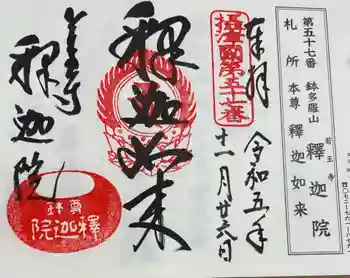 第五十七番 鉢多羅山 若王寺 釋迦院
札所 本尊 釋迦如来
奉拝
令和五年
十一月廿六日
摂津国第五十七番
釋迦如来
釋迦院
尊鉢
釋迦院